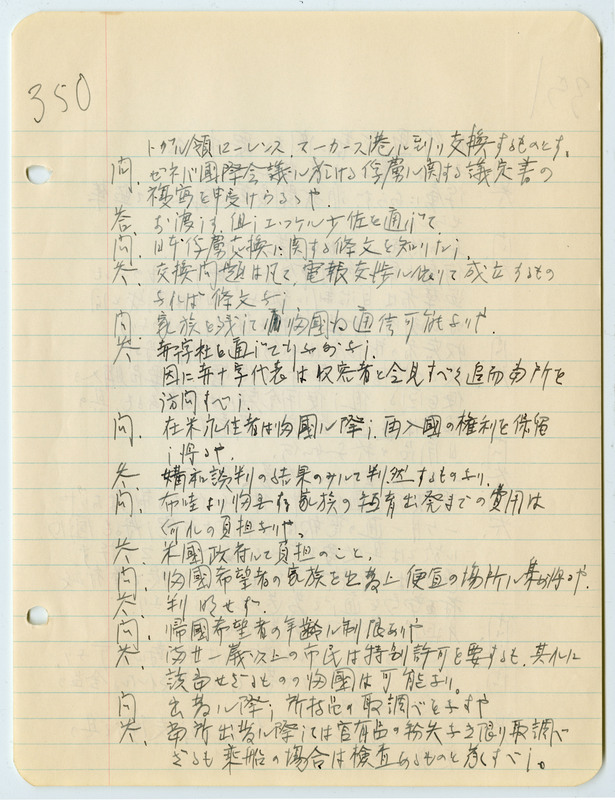 350
トガル領ローレンス、マーカース港ニ到リ交換するものとす。
問、ゼネバ國際会議ニ於ける俘虜ニ関する議定書の
複写を申受けうるや。
答、お渡しす、但しエッケル少佐を通じて
問、日本俘虜交換に関する條文を知りたし、
答、交換問題は凡て電報交渉ニ依りて成立するもの
なれば條文なし
問、家族を残して帰國し通信可能なりや、
答、赤字社を通じて
因に赤十字代表は収容者と会見すべく追而当所を
訪問すべし、
問、在米永住者は帰國ニ際し、再入國の権利を保留
し得るや、
答、媾和談判の結果のみにて判然するものなり、
問、布哇より帰る家族の出発までの費用は
何れの負担なりや。
答、米國政府にて負担のこと、
問、帰國希望者の家族を出発上便宜の場所ニ集め得るや、
答、判明せず、
問、帰國希望者の年齢ニ制限ありや
答、満廿一歳以上の市民は特別許可を要するも、其れに
該当せざるものの帰國は可能なり。
問、出発ニ際し、所持品の取調べを
答、当所出発ニ際しては官有品の紛失なき限り取調べ
ざるも乗船の場合は検査あるものと考ふべし。